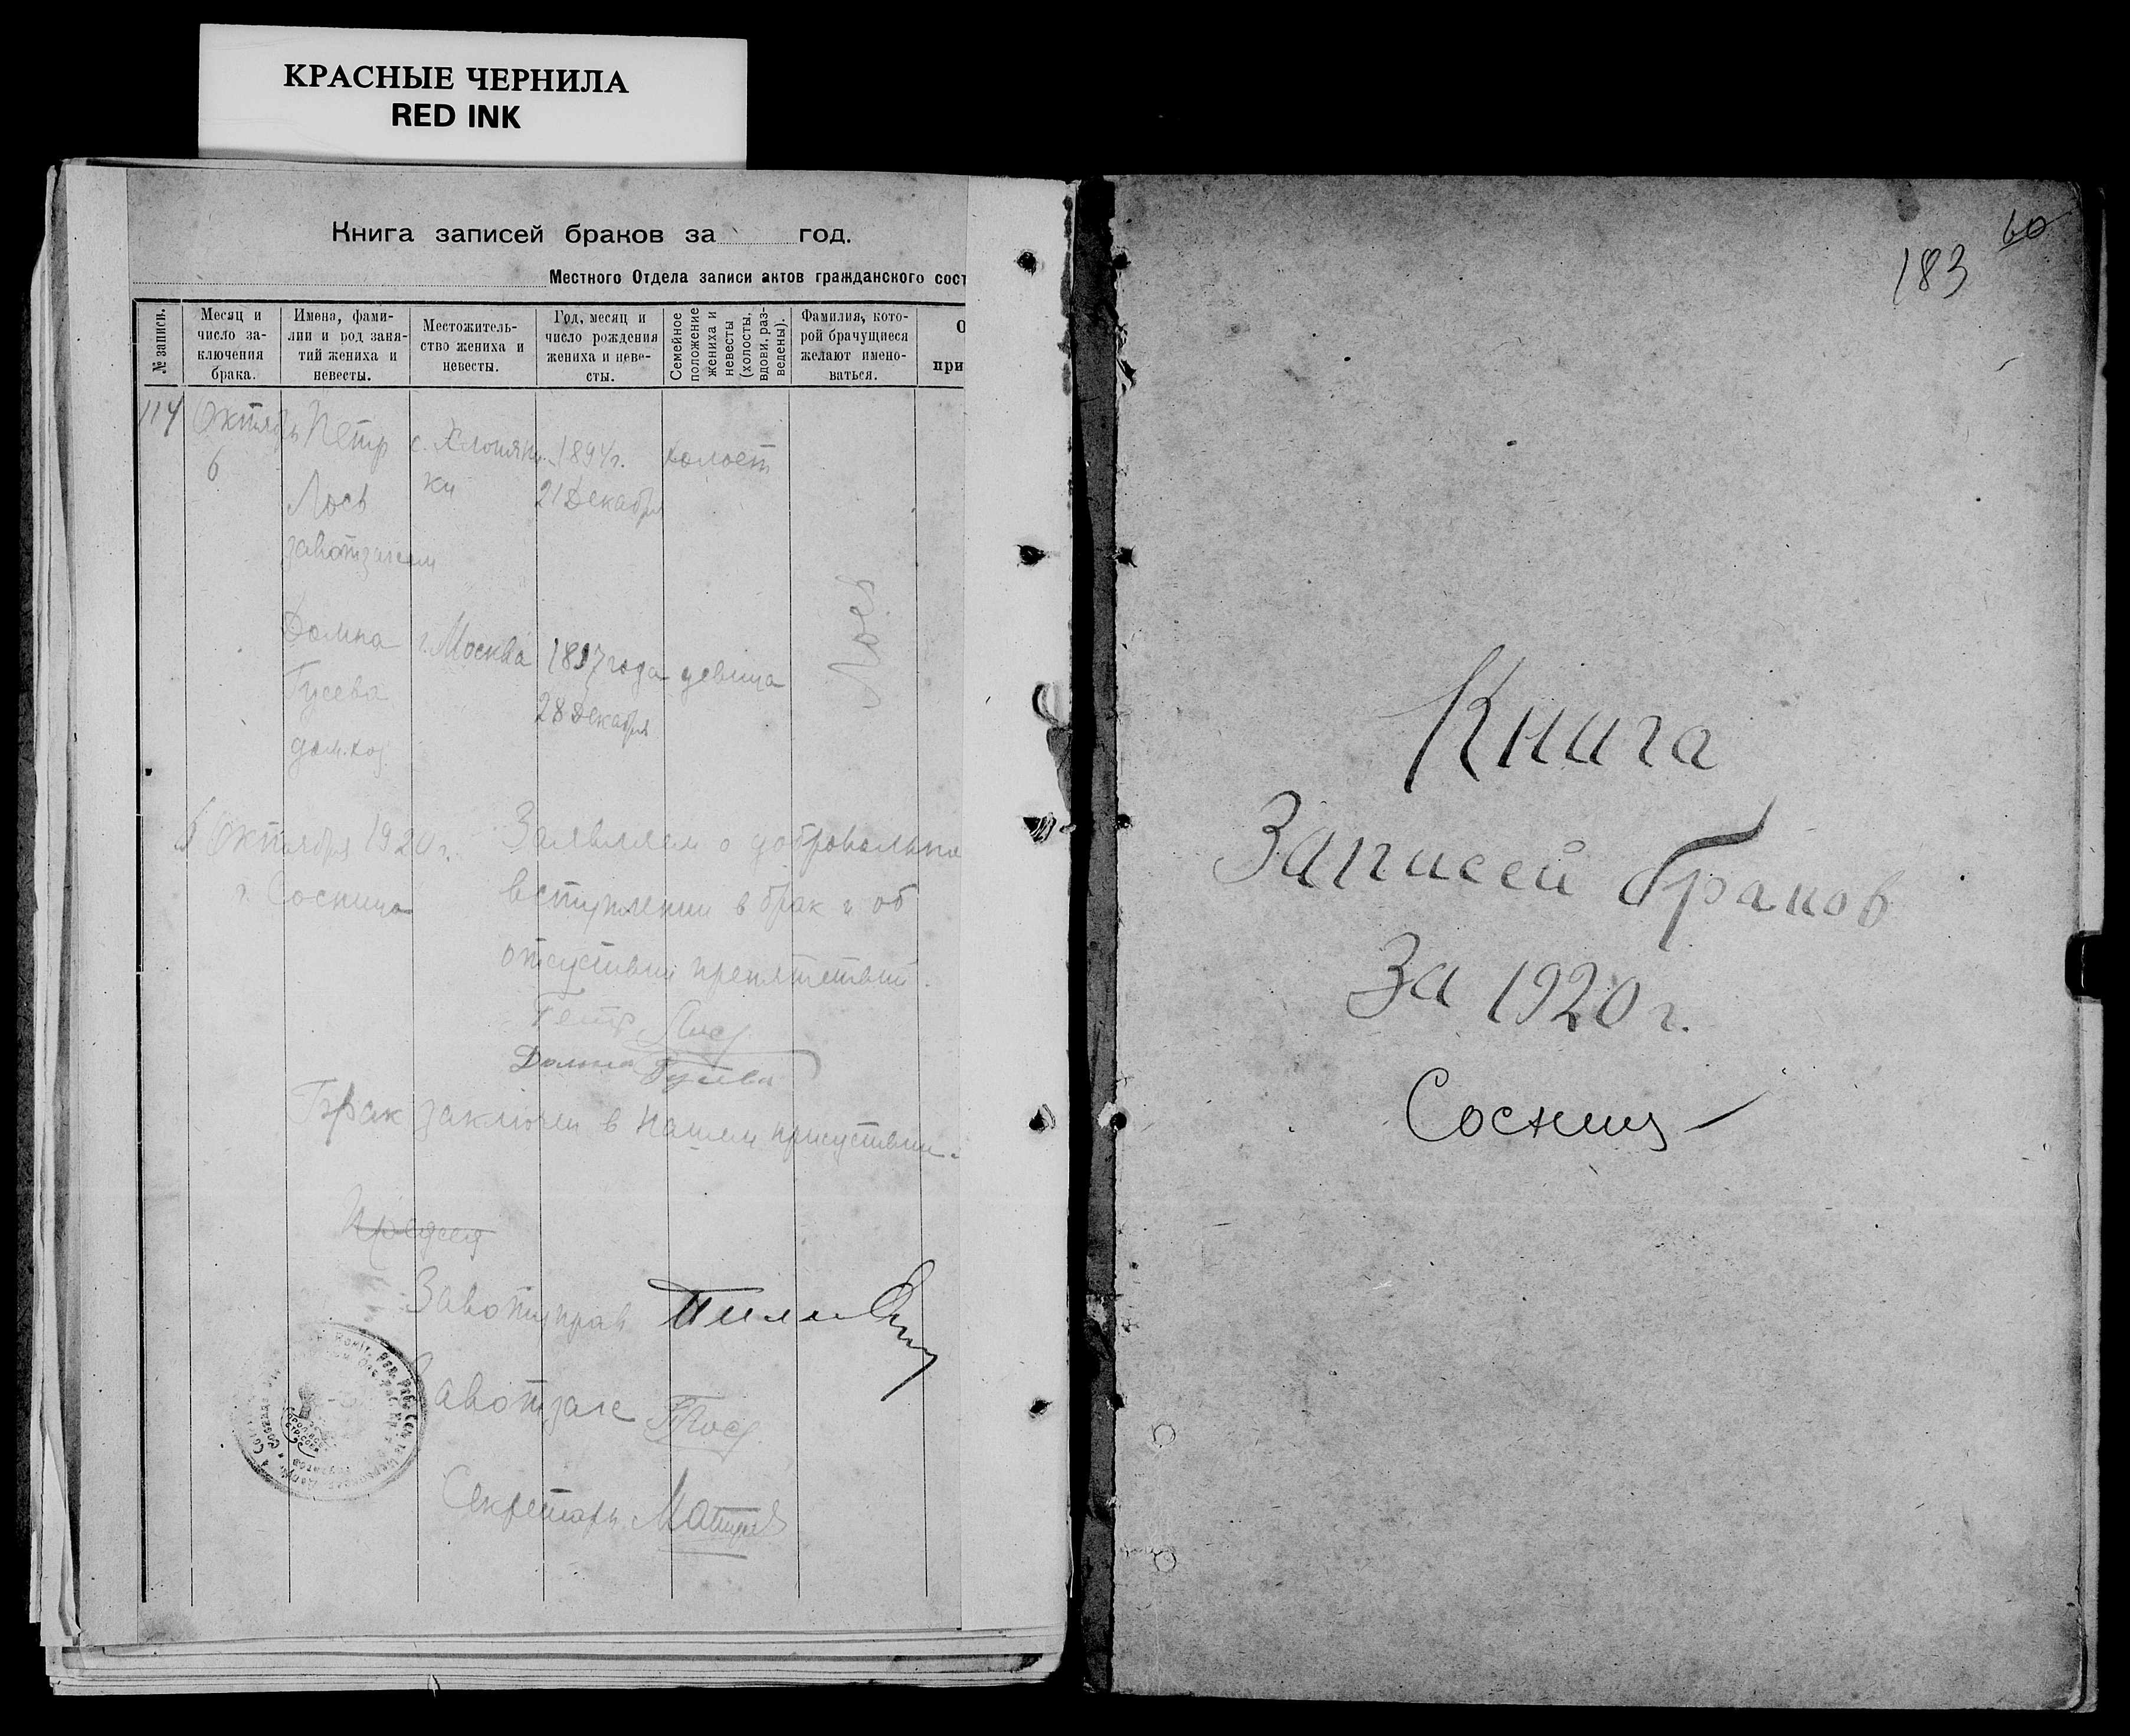 КРАСНЫЕ ЧЕРНИЛА
RED INK
Книга записей браков за год.
Местного Отдела записи актов гражданского сост
№ записи.
Месяц и
число за-
ключения
брака.
Имена, фами-
лии и род заня-
тий жениха и
невесты.
Местожитель-
ство жениха и
невесты.
Год, месяц и
число рождения
жениха и неве-
сты.
Семейное
положение
жениха и
невесты
(холосты,
вдовы, раз-
ведены).
Фамилия, кото-
рой брачущиеся
желают имено-
ваться.
О
при
114
Октябрь
6
Петр
Лось
завотзагсом
ки
1894г.
21 Декабря
холост
Домна
Гусева
дом.хоз
г. Москва
1897 года
28 Декабря
девица
Лось
6 Октября 1920 г.
г. Сосница
Заявляем о добровольно
вступлении в брак и об
отсуствии препятствий.
Петр Лось
Домна Гусева
Брак заключен в нашем присуствии.
Завотуправ
Завотзагс
Секретарь
183
60
Книга
Записей браков
За 1920 г.
Сосниця